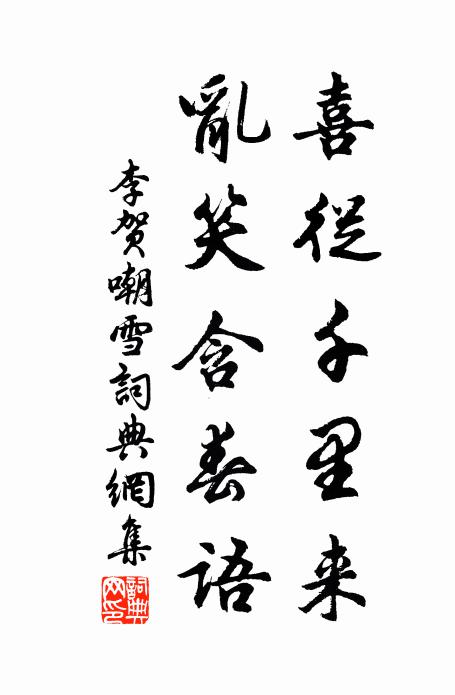 喜從千里来
亂笑含春語
李贺嘲雪詞典網集
詞典網印